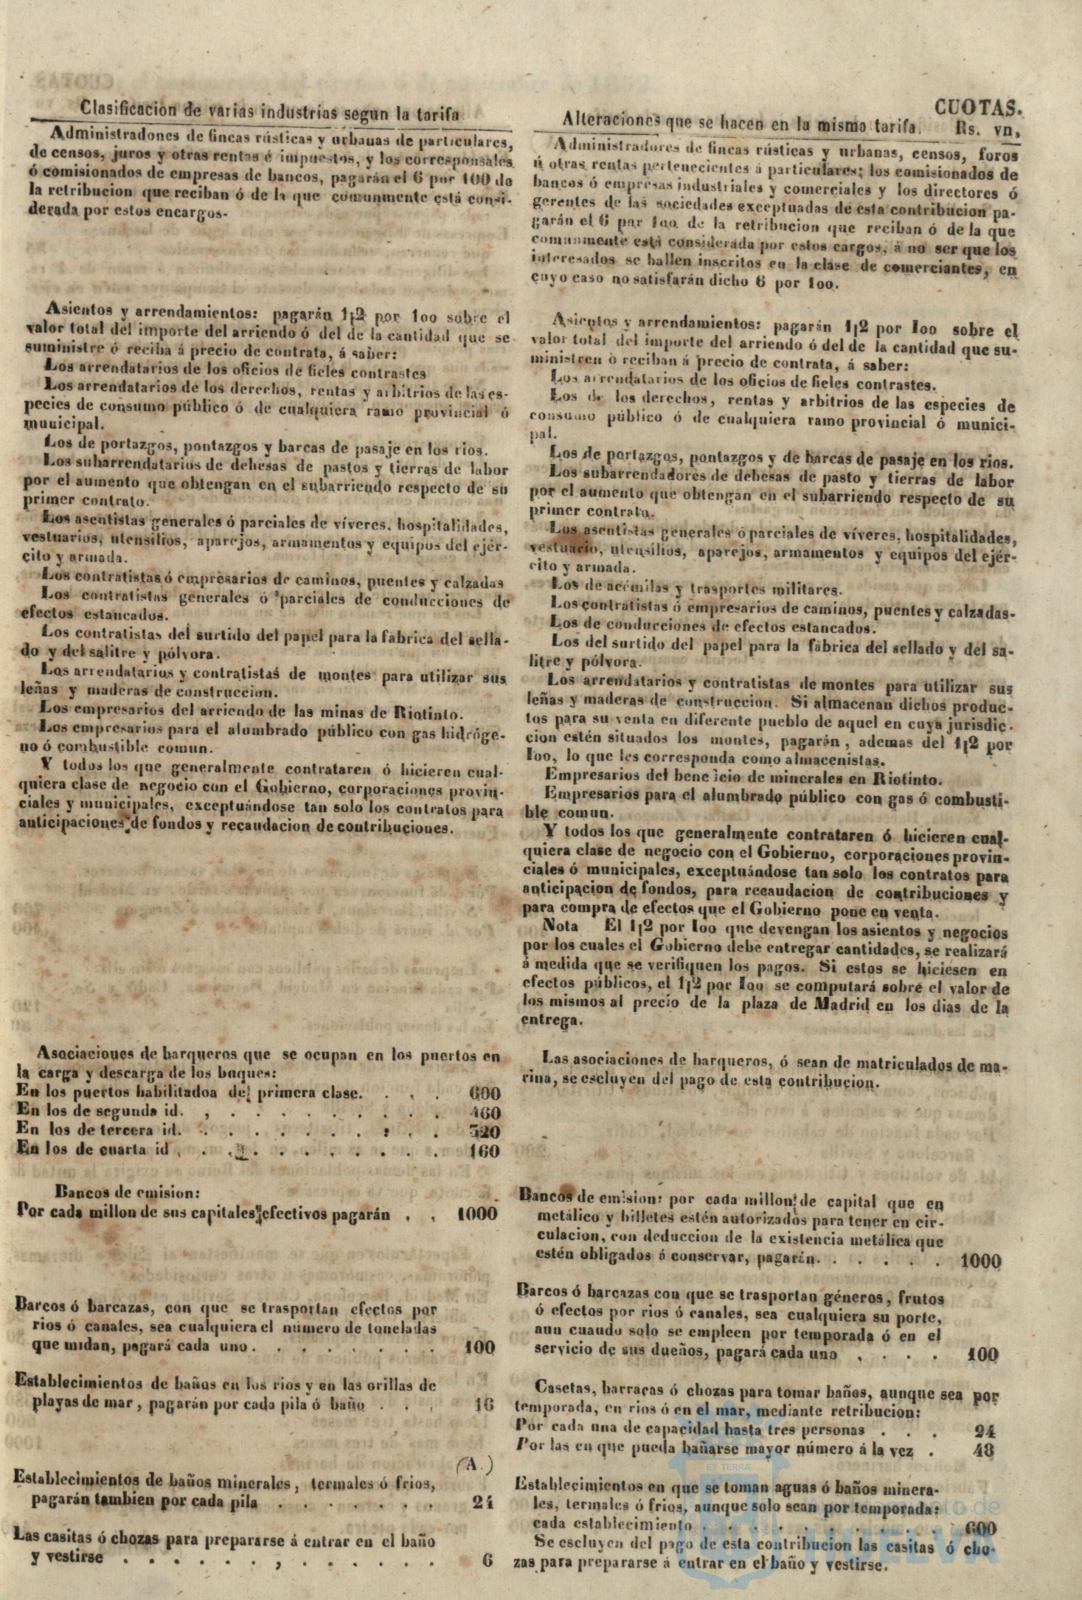 Clasificacion de varias industrias segun la tarifa
Administradones de fincas rústicas y urbanas de particulares,
de censos, juros y otras rentas é impuestos, y los corresponsales
ó comisionados de empresas de bancos, pagarán el 6 por 100 de
la retribucion que reciban ó de la que comunmente está consi-
derada por estos encargos-
Asientos y arrendamientos: pagarán 1|2 por 1oo sobre el
valor total del importe del arriendo ó del de la cantidad que se
suministre ó reciba á precio de contrata, á saber:
Los arrendatarios de los oficios de fieles contrastes
Los arrendatarios de los derechos, rentas y arbitrios de las es-
pecies de consumo público ó de cualquiera ramo provincial ó
municipal.
Los de portazgos, pontazgos y barcas de pasaje en los rios.
Los subarrendatarios de dehesas de pastos y tierras de labor
por el aumento que obtengan en el subarriendo respecto de su
primer contrato.
Los asentistas generales ó parciales de víveres, hospitalidades,
vestuarios, utensilios, aparejos, armamentos y equipos del ejér-
cito y armada.
Los contratistas ó empresarios de caminos, puentes y calzadas
Los contratistas generales ó parciales de conducciones de
efectos estancados.
Los contratistas del surtido del papel para la fábrica del sella-
do y del salitre y pólvora.
Los arrendatarios y contratistas de montes para utilizar sus
leñas y maderas de construccion.
Los empresarios del arriendo de las minas de Riotinto.
Los empresarios para el alumbrado público con gas hidróge-
no ó combustible comun.
Y todos los que generalmente contrataren ó hicieren cual-
quiera clase de negocio con el Gobierno, corporaciones provin-
ciales y municipales, exceptuándose tan solo los contratos para
anticipaciones de fondos y recaudacion de contribuciones.
Asociaciones de barqueros que se ocupan en los puertos en
la carga y descarga de los buques:
En los puertos habilitadoa de primera clase. . . . 600
En los de segunda id. , . . . . . . . . . 460
En los de tercera id. . . . . . . . . : , . 320
En los de cuarta id . . . . . . . . . . . 160
Bancos de emision:
Por cada millon de sus capitales efectivos pagarán . . 1000
Barcos ó barcazas, con que se trasportan efectos por
rios ó canales, sea cualquiera el número de toneladas
que midan, pagará cada uno . . . . . . . . 100
Establecimientos de baños en los rios y en las orillas de
playas de mar, pagarán por cada pila ó baño . . . 16
(A.)
Establecimientos de baños minerales, termales ó frios,
pagarán tambien por cada pila . . . . . . . 24
Las casitas ó chozas para prepararse á entrar en el baño
y vestirse . . . . . . , . . . . . 6
CUOTAS.
Alteraciones que se hacen en la misma tarifa. Rs. vn,
Administradores de fincas rústicas y urbanas, censos, foros
ú otras rentas pertenecientes á particulares; los comisionados de
bancos ó empresas industriales y comerciales y los directores ó
gerentes de las sociedades exceptuadas de esta contribucion pa-
garán el 6 por 1oo de la retribucion que reciban ó de la que
comunmente está considerada por estos cargos, á no ser que los
interesados se hallen inscritos en la clase de comerciantes, en
cuyo caso no satisfarán dicho 6 por 1oo.
Asientos y arrendamientos: pagarán 1|2 por 1oo sobre el
valor total del importe del arriendo ó del de la cantidad que su-
ministren ó reciban á precio de contrata, á saber:
Los arrendatarios de los oficios de fieles contrastes.
Los de los derechos, rentas y arbitrios de las especies de
consumo público ó de cualquiera ramo provincial ó munici-
pal.
Los de portazgos, pontazgos y de barcas de pasaje en los rios.
Los subarrendadores de dehesas de pasto y tierras de labor
por el aumento que obtengan en el subarriendo respecto de su
primer contrato.
Los asentistas generales ó parciales de víveres, hospitalidades,
vestuario, utensilios, aparejos, armamentos y equipos del ejér-
cito y armada.
Los de acémilas y trasportes militares.
Los contratistas ó empresarios de caminos, puentes y calzadas-
Los de conducciones de efectos estancados.
Los del surtido del papel para la fábrica del sellado y del sa-
litre y pólvora.
Los arrendatarios y contratistas de montes para utilizar sus
leñas y maderas de construccion. Si almacenan dichos produc-
tos para su venta en diferente pueblo de aquel en cuya jurisdic-
cion estén situados los montes, pagarán, ademas del 1|2 por
1oo, lo que les corresponda como almacenistas.
Empresarios del beneficio de minerales en Riotinto.
Empresarios para el alumbrado público con gas ó combusti-
ble comun.
Y todos los que generalmente contrataren ó hicieren cual-
quiera clase de negocio con el Gobierno, corporaciones provin-
ciales ó municipales, exceptuándose tan solo los contratos para
anticipacion de fondos, para recaudacion de contribuciones y
para compra de efectos que el Gobierno pone en venta.
Nota El 1|2 por 1oo que devengan los asientos y negocios
por los cuales el Gobierno debe entregar cantidades, se realizará
á medida que se verifiquen los pagos. Si estos se hiciesen en
efectos públicos, el 1|2 por 1oo se computará sobre el valor de
los mismos al precio de la plaza de Madrid en los dias de la
entrega.
Las asociaciones de barqueros, ó sean de matriculados de ma-
rina, se escluyen del pago de esta contribucion.
Bancos de emision: por cada millon de capital que en
metálico y billetes estén autorizados para tener en cir-
culacion, con deduccion de la existencia metálica que
estén obligados á conservar, pagarán. . . . . . 1000
Barcos ó barcazas con que se trasportan géneros, frutos
ó efectos por rios ó canales, sea cualquiera su porte,
aun cuando solo se empleen por temporada ó en el
servicio de sus dueños, pagará cada uno . . . . 100
Casetas, barracas ó chozas para tomar baños, aunque sea por
temporada, en rios ó en el mar, mediante retribucion:
Por cada una de capacidad hasta tres personas . . . 24
Por las en que pueda bañarse mayor número á la vez . 48
Establecimientos en que se toman aguas ó baños minera-
les, termales ó frios, aunque solo sean por temporada:
cada establecimiento . . . . . . . . . . . 600
Se escluyen del pago de esta contribucion las casitas ó cho-
zas para prepararse á entrar en el baño y vestirse.